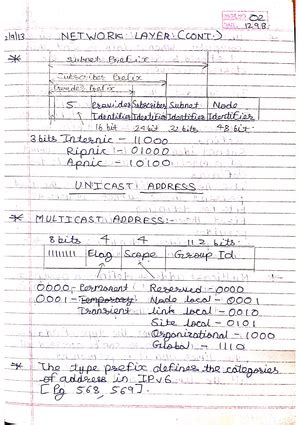 02
2/9/13 NETWORK LAYER (CONT.)
* Subnet Prefix
Subscriber Prefix
Provider Prefix
5 Provider Subscriber Subnet Node
Identifier Identifier Identifier Identifier
16 bit 24 bit 32 bits 48 bit
3 bits Internic - 11000
Ripnic - 01000
Apnic - 10100
UNICAST ADDRESS
* MULTICAST ADDRESS:-
8 bits 4 4 112 bits
11111111 Flag Scope Group Id.
0000 - Permanent Reserved - 0000
0001 - Temporary Node local - 0001
Transient link local - 0010
Site local - 0101
Organizational - 1000
Global - 1110
* The type prefix defines the categories
of address in IPv6
[Pg 568, 569].